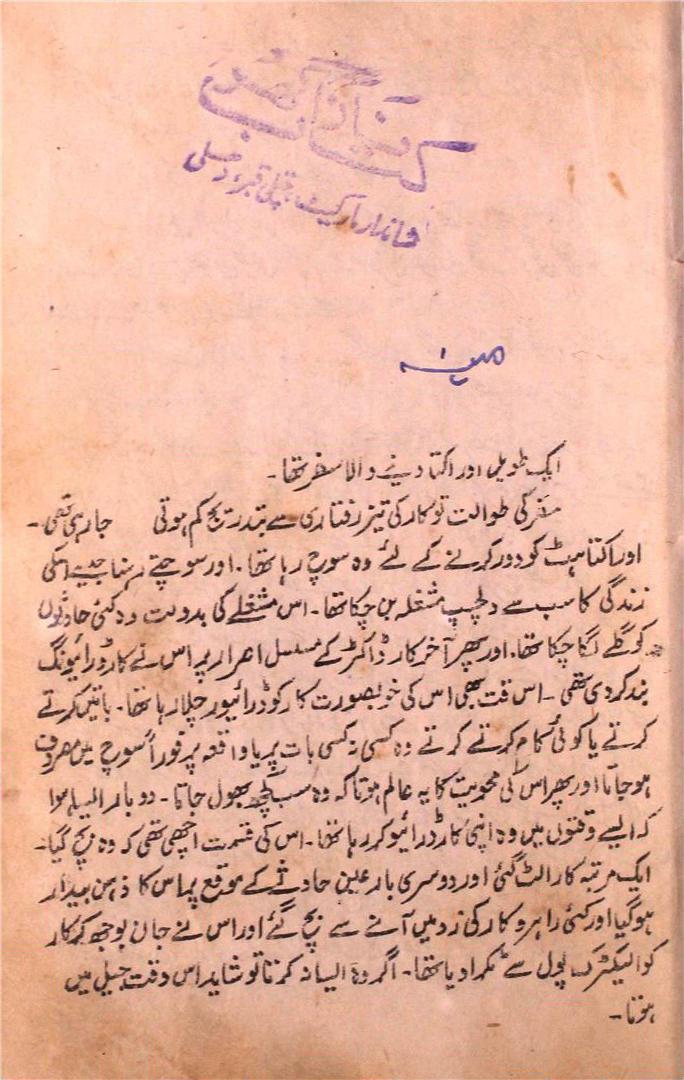 کتاب
مارکیٹ، چتلی قبر، دہلی
ایک طویل اور اکتا دینے والا سفر تھا۔
سفر کی طوالت تو کار کی تیز رفتاری سے بتدریج کم ہوتی جارہی تھی۔
اور اکتاہٹ کو دور کرنے کے لئے وہ سوچ رہا تھا۔ اور سوچتے رہنا جیسے اسکی
زندگی کا سب سے دلچسپ مشغلہ بن چکا تھا۔ اس مشغلے کی بدولت وہ کئی حادثوں
کو گلے لگا چکا تھا۔ اور پھر آخر کار ڈاکٹر کے مسلسل اصرار پر اس نے کار ڈرائیونگ
بند کردی تھی۔ اس وقت بھی اس کی خوبصورت کار کو ڈرائیور چلا رہا تھا۔ باتیں کرتے
کرتے یا کوئی کام کرتے کرتے وہ کسی نہ کسی بات پر یا واقعہ پر فوراً سوچ میں مصروف
ہوجاتا اور پھر اس کی محویت کا یہ عالم ہوتا کہ وہ سب کچھ بھول جاتا۔ دو بار ایسا ہوا
کہ ایسے وقتوں میں وہ اپنی کار ڈرائیو کر رہا تھا۔ اس کی قسمت اچھی تھی کہ وہ بچ گیا۔
ایک مرتبہ کار الٹ گئی اور دوسری بار عین حادثے کے موقع پر اس کا ذہن بیدار
ہوگیا اور کئی راہرو کار کی زد میں آنے سے بچ گئے اور اس نے جان بوجھ کر کار
کو الیکٹرک پول سے ٹکرا دیا تھا۔ اگر وہ ایسا نہ کرتا تو شاید اس وقت جیل میں
ہوتا۔